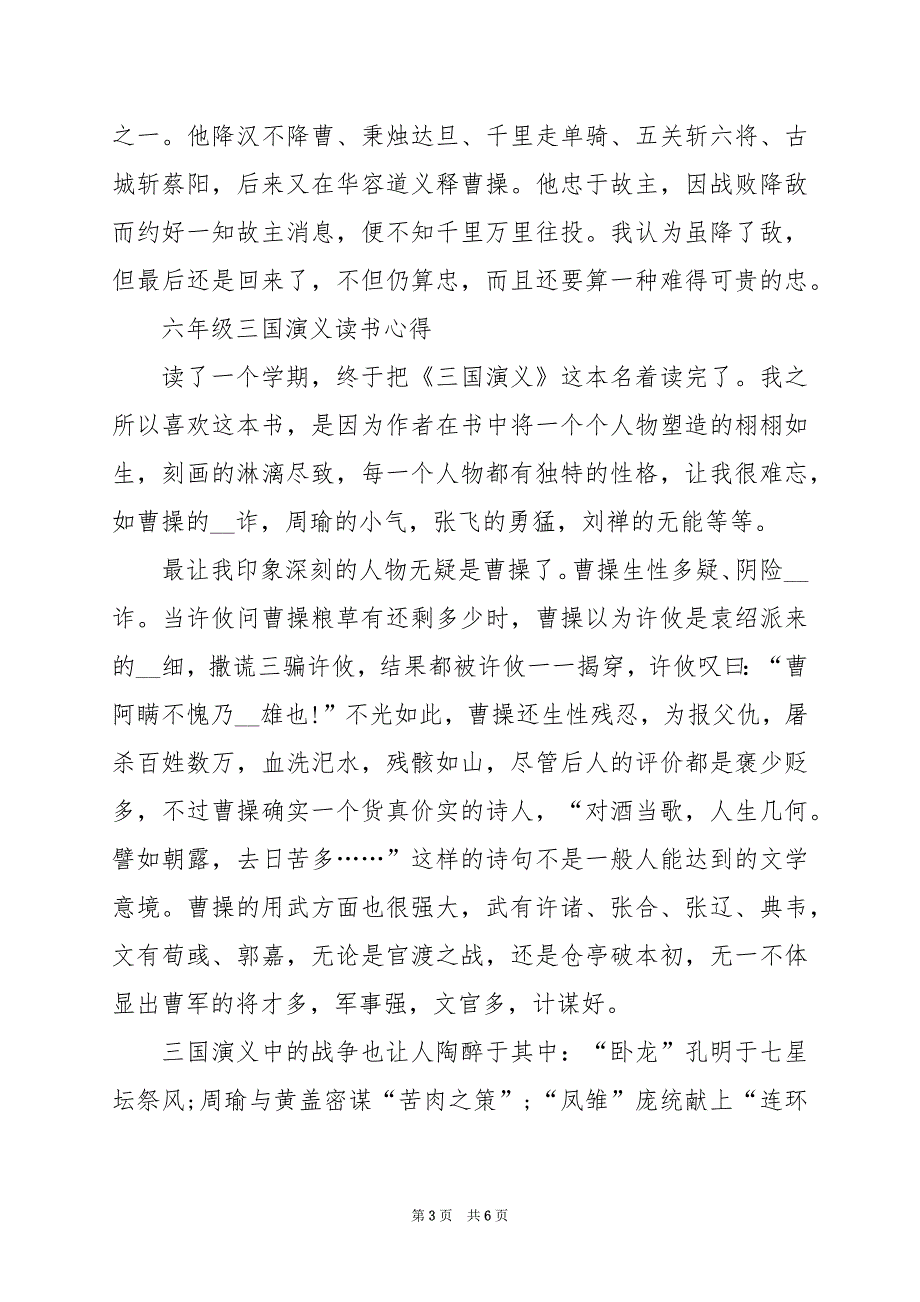 之一。他降汉不降曹、秉烛达旦、千里走单骑、五关斩六将、古
城斩蔡阳，后来又在华容道义释曹操。他忠于故主，因战败降敌
而约好一知故主消息，便不知千里万里往投。我认为虽降了敌，
但最后还是回来了，不但仍算忠，而且还要算一种难得可贵的忠。
六年级三国演义读书心得
读了一个学期，终于把《三国演义》这本名着读完了。我之
所以喜欢这本书，是因为作者在书中将一个个人物塑造的栩栩如
生，刻画的淋漓尽致，每一个人物都有独特的性格，让我很难忘，
如曹操的__诈，周瑜的小气，张飞的勇猛，刘禅的无能等等。
最让我印象深刻的人物无疑是曹操了。曹操生性多疑、阴险__
诈。当许攸问曹操粮草有还剩多少时，曹操以为许攸是袁绍派来
的__细，撒谎三骗许攸，结果都被许攸一一揭穿，许攸叹曰：“曹
阿瞒不愧乃__雄也!”不光如此，曹操还生性残忍，为报父仇，屠
杀百姓数万，血洗汜水，残骸如山，尽管后人的评价都是褒少贬
多，不过曹操确实一个货真价实的诗人，“对酒当歌，人生几何。
譬如朝露，去日苦多……”这样的诗句不是一般人能达到的文学
意境。曹操的用武方面也很强大，武有许诸、张合、张辽、典韦，
文有荀彧、郭嘉，无论是官渡之战，还是仓亭破本初，无一不体
显出曹军的将才多，军事强，文官多，计谋好。
三国演义中的战争也让人陶醉于其中：“卧龙”孔明于七星
坛祭风;周瑜与黄盖密谋“苦肉之策”;“凤雏”庞统献上“连环
第 3 页 共 6 页